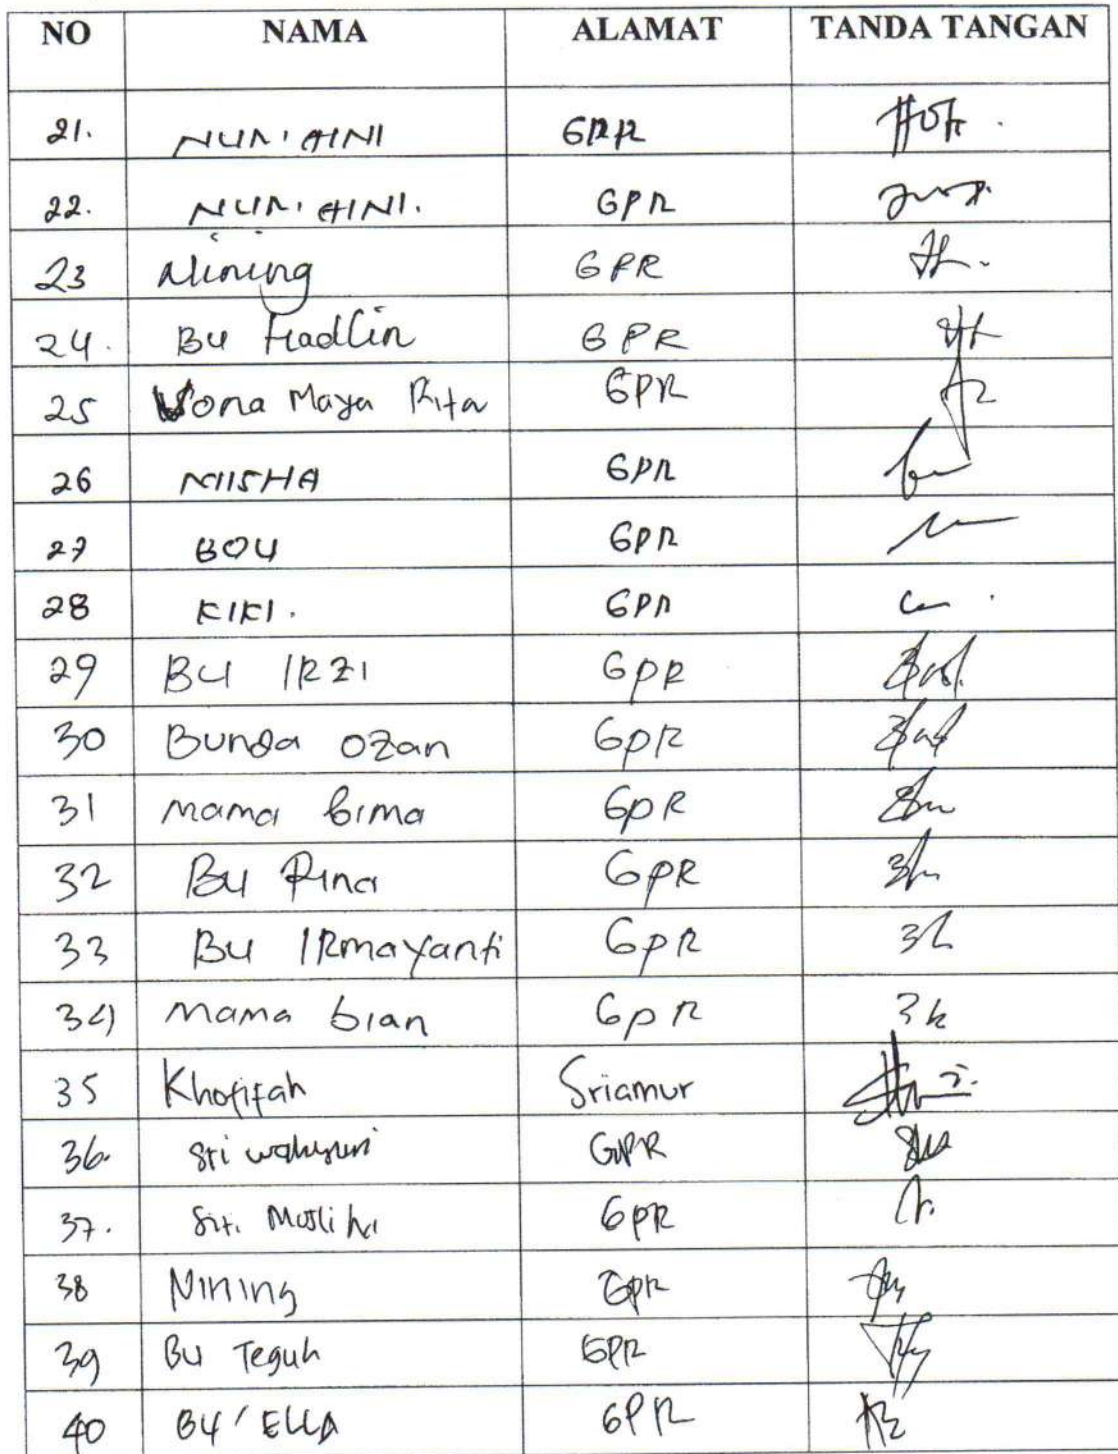 NO NAMA ALAMAT TANDA TANGAN
21. NUR'AINI GPR
22. NUR'AINI. GPR
23 Nining GPR
24. Bu Hadlin GPR
25 Vona Maya Rita GPR
26 NIISHA GPR
27 BOU GPR
28 KIKI. GPR
29 BU IRZI GPR
30 Bunda Ozan GPR
31 mama bima GPR
32 Bu Rina GPR
33 Bu IRmayanti GPR
34 mama bian GPR
35 Khofifah Sriamur
36. Sri wahyuni GPR
37. Siti Musliha GPR
38 Nining GPR
39 Bu Teguh GPR
40 BU' ELLA GPR